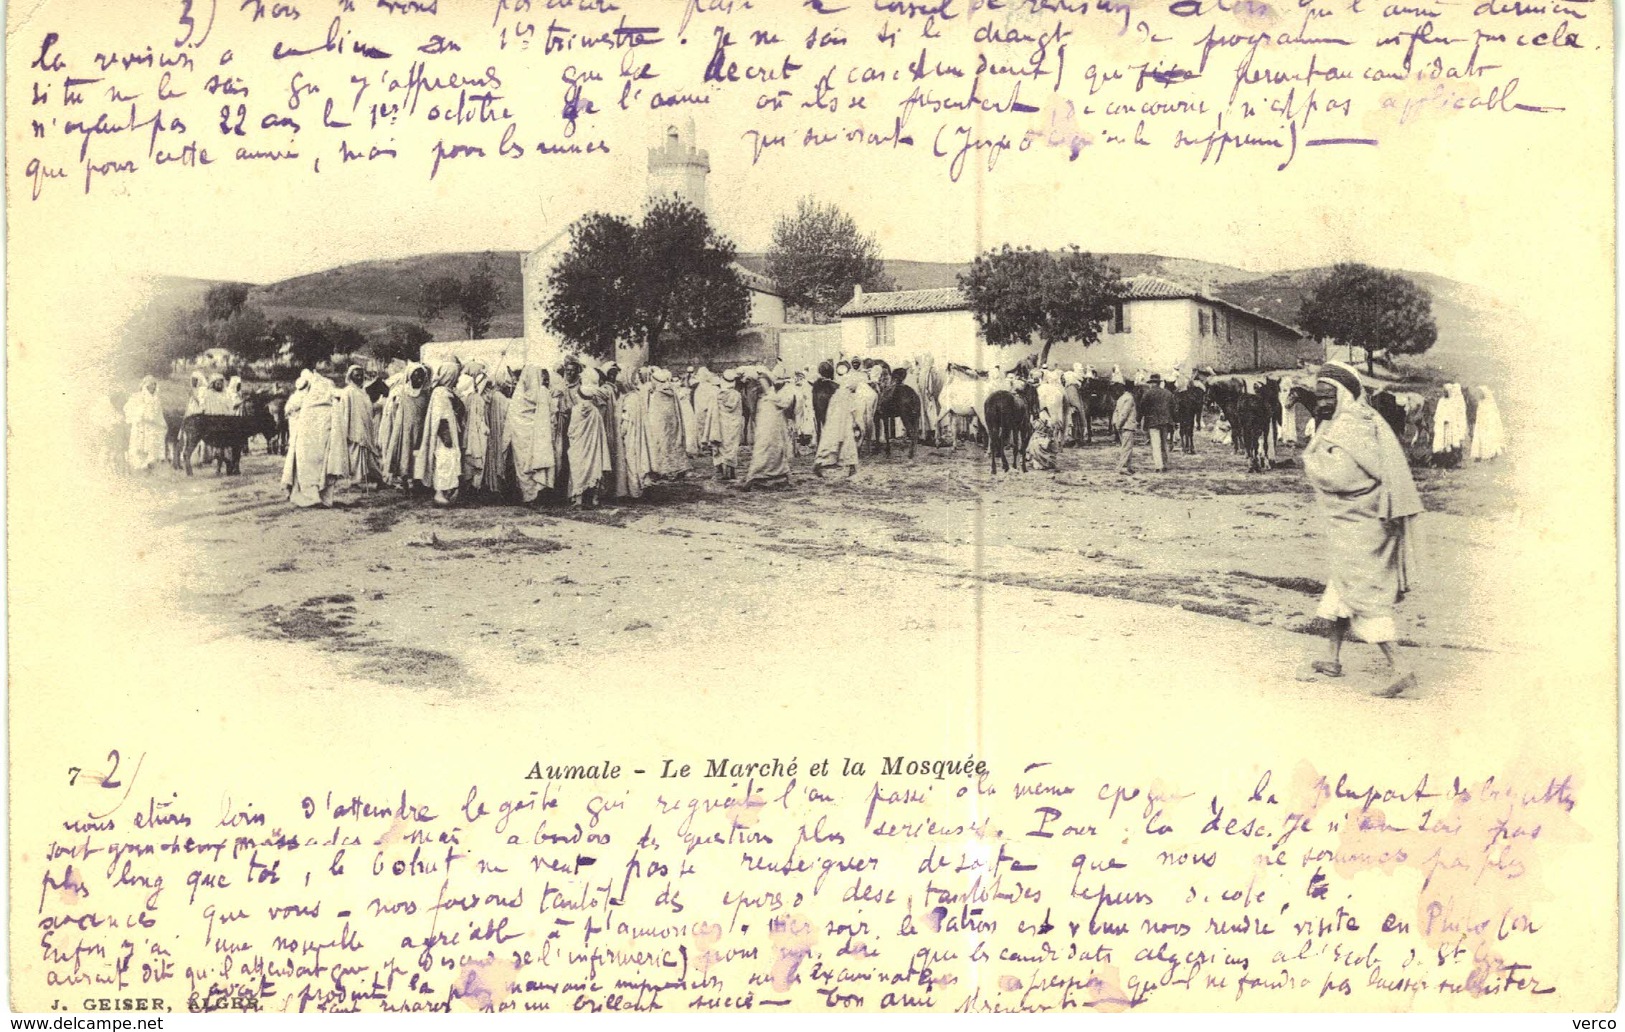 3) nous n'avons pas encore passé le conseil de revision alors que l'année dernière
la revision a eu lieu au 1er trimestre. Je ne sais si le changt de programme influe sur cela.
si tu ne le sais qu j'apprends que le decret (car c'est un decret) qui permet au candidat
n'ayant pas 22 ans le 1er octobre de l'année où ils se présentent de concourir, n'est pas applicable
que pour cette année, mais pour les années qui suivant (Jusqu'ò le supprimé)
Aumale - Le Marché et la Mosquée
7 2)
nous étions loin d'atteindre la gaité qui regnait l'an passé à la même epoque, la plupart des
sont grincheux Mais abordons des questions plus serieuses. Pour la desc. Je n'en sais pas
plus long que toi, le bahut ne veut pas se renseigner de sorte que nous ne sommes pas plus
avancés que vous - nous faisons tantôt des epures desc, tantôt des epures de cote,
Enfin j'ai une nouvelle agréable à t'annoncer. Hier soir, le Patron est venu nous rendre visite en Philo (on
aurait dit qu'il attendait que je descende de l'infirmerie) nous dire que les candidats algeriens à l'Ecole de St Cyr
avait produit la plus mauvaise impression sur les examinateurs impression qu'il ne faudra pas laisser subsister
qu'il faut reparer par un brillant succès - Ton ami
J. GEISER, ALGER